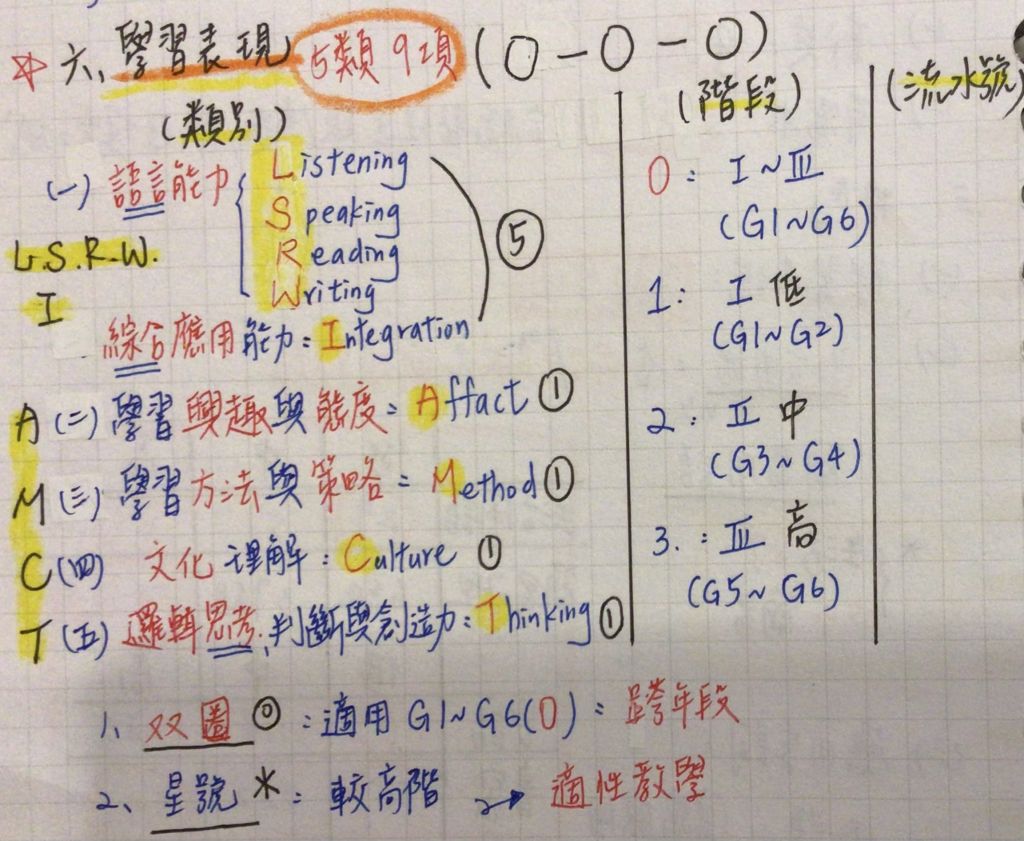 ☆ 六、學習表現 5類9項 (O-O-O)
(類別)
(階段)
(流水號)
(一) 語言能力
Listening
Speaking
Reading
Writing
⑤
L.S.R.W.
I
綜合應用能力: Integration
A (二) 學習興趣與態度: Affact ①
M (三) 學習方法與策略: Method ①
C (四) 文化理解: Culture ①
T (五) 邏輯思考、判斷與創造力: Thinking ①
0: I~Ⅲ
(G1~G6)
1: I 低
(G1~G2)
2: Ⅱ 中
(G3~G4)
3.: Ⅲ 高
(G5~G6)
1、双圈 ◎: 適用 G1~G6(0): 跨年段
2、星號 *: 較高階 → 適性教學